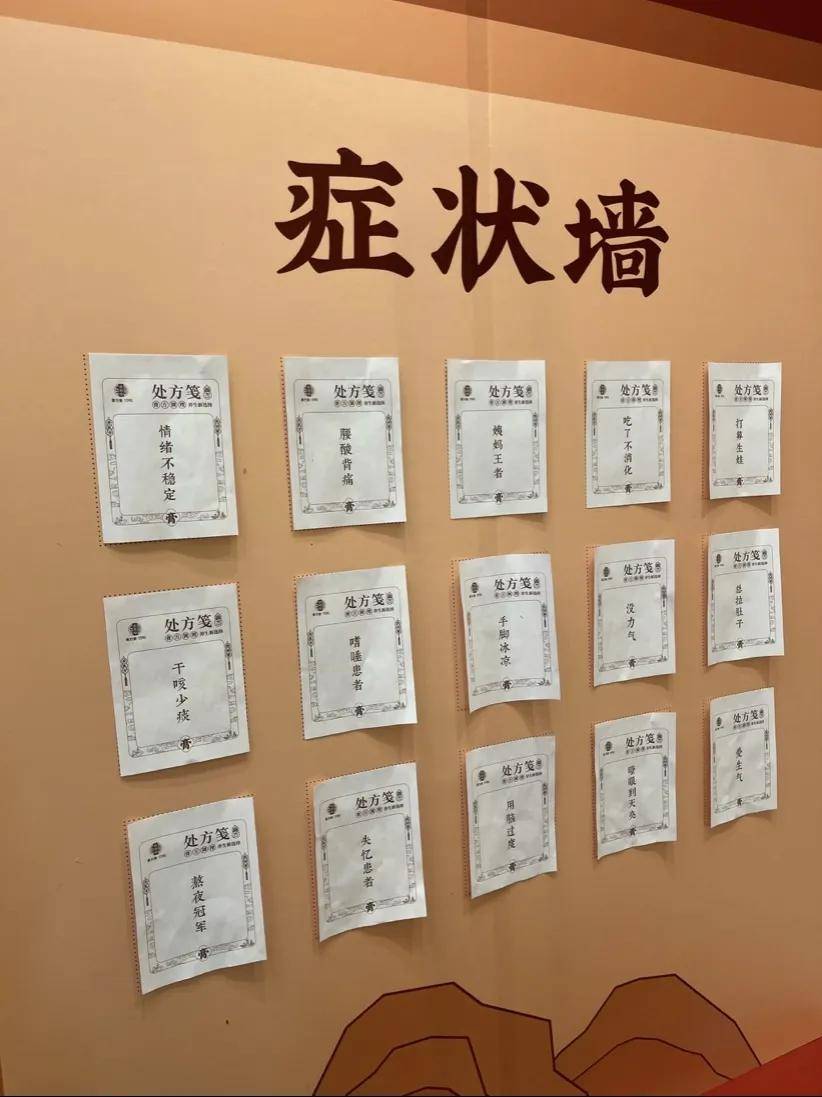 症状墙
处方笺
情绪不稳定
膏
处方笺
腰酸背痛
膏
处方笺
姨妈王者
膏
处方笺
吃了不消化
膏
处方笺
打算生娃
膏
处方笺
干咳少痰
膏
处方笺
嗜睡患者
膏
处方笺
手脚冰凉
膏
处方笺
没力气
膏
处方笺
总拉肚子
膏
处方笺
熬夜冠军
膏
处方笺
失忆患者
膏
处方笺
用脑过度
膏
处方笺
睁眼到天亮
膏
处方笺
爱生气
膏